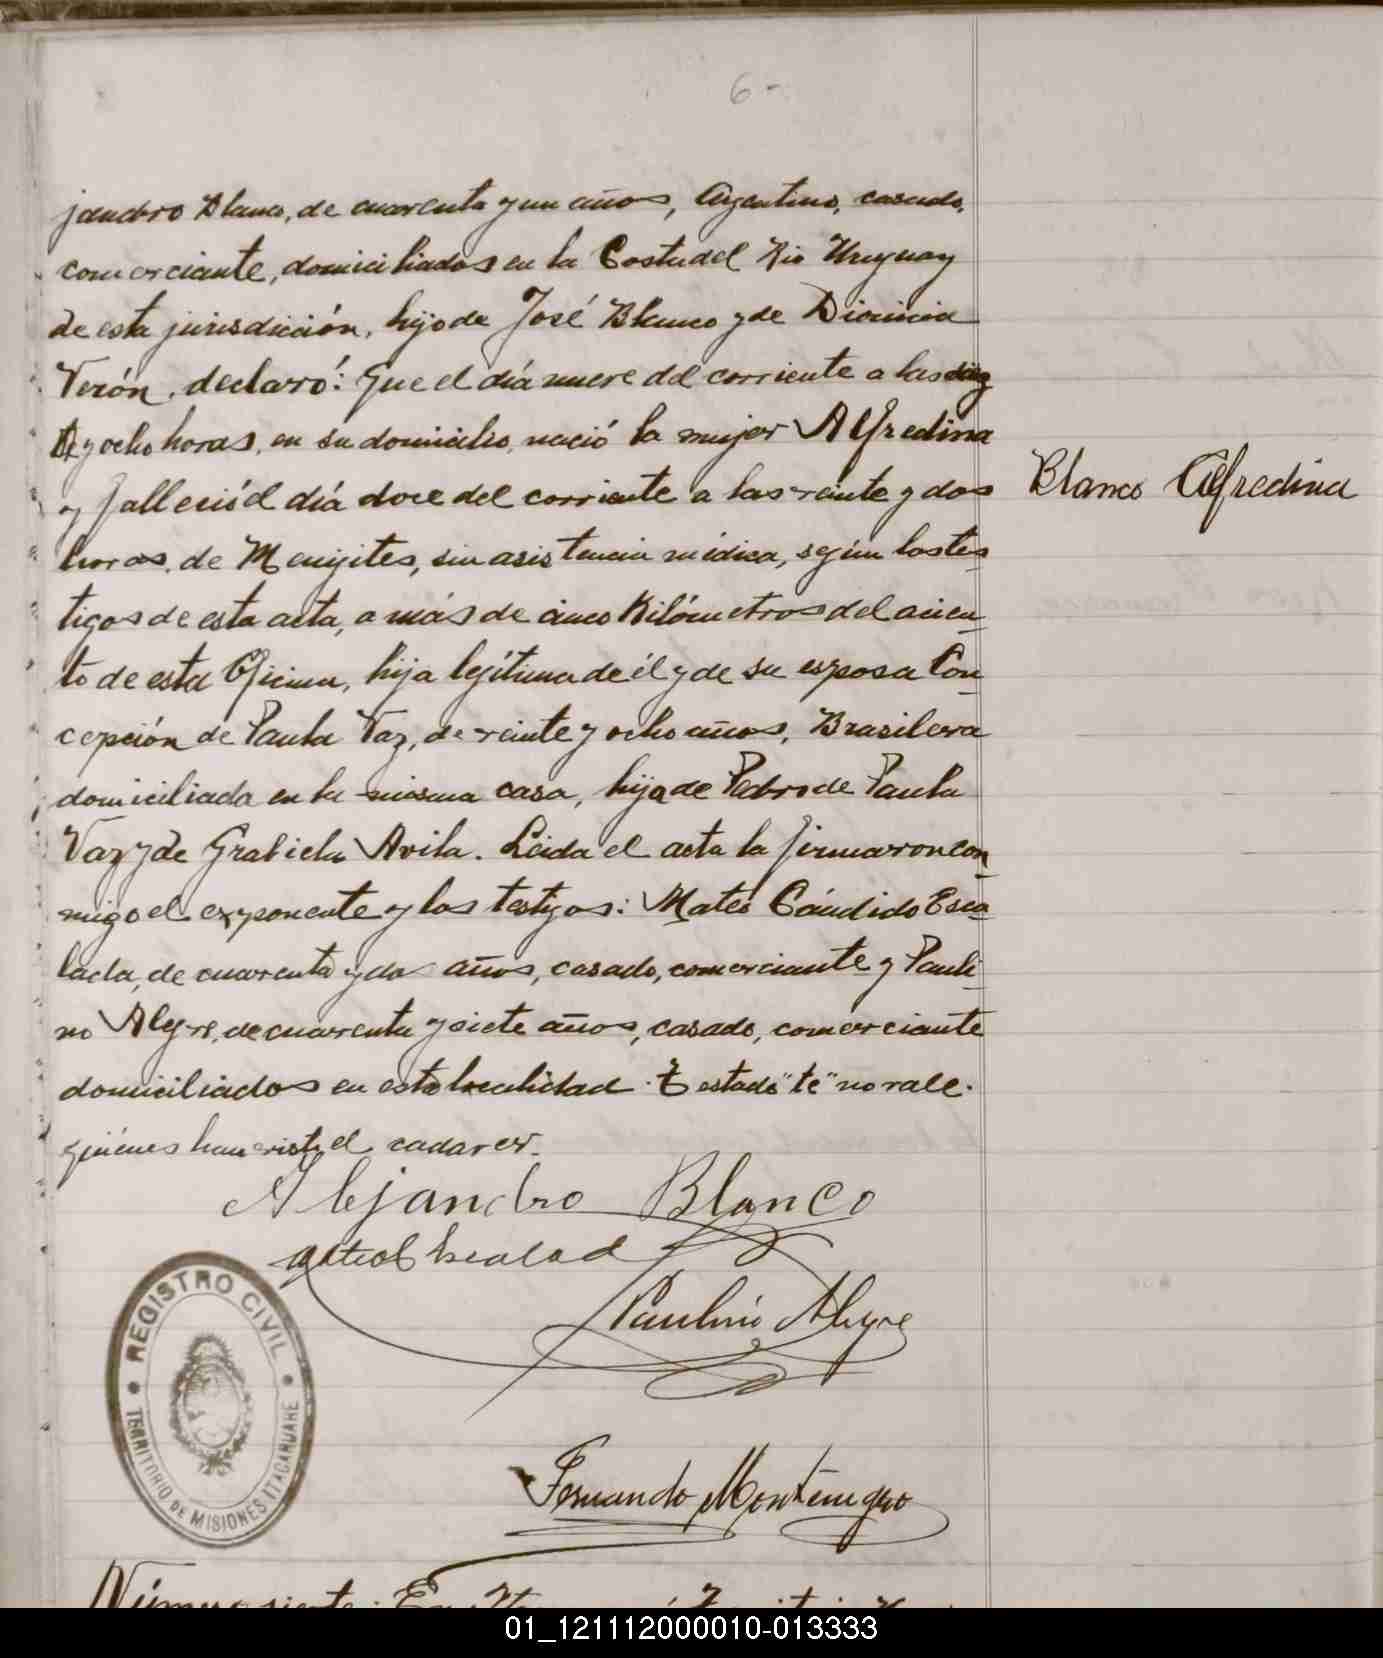 6-
jandro Blanco, de cuarenta y un años, Argentino, casado,
comerciante, domiciliados en la Costa del Rio Uruguay
de esta jurisdicción, hijo de José Blanco y de Dionicia
Verón, declaró: Que el día nueve del corriente a las diez
y ocho horas, en su domicilio, nació la mujer Alfredina
Blanco Alfredina
y falleció el día doce del corriente a las veinte y dos
horas, de Menijites, sin asistencia médica, según los tes-
tigos de esta acta, a más de cinco Kilómetros del acien-
to de esta Oficina, hija legítima de él y de su esposa Con-
cepción de Paula Vaz, de veinte y ocho años, Brasilera
domiciliada en la misma casa, hija de Pedro de Paula
Vaz y de Grabiela Avila. Leida el acta la firmaron con-
migo el exponente y los testigos: Mateo Cándido Esca-
lada, de cuarenta y dos años, casado, comerciante y Pauli-
no Alegre, de cuarenta y siete años, casado, comerciante
domiciliados en esta localidad. Testado "te" no vale.
quiénes han visto el cadaver.
Alejandro Blanco
Paulino Alegre
REGISTRO CIVIL
TERRITORIO DE MISIONES ITACARUARE
Fernando Montenegro
Número siete: En
01_121112000010-013333